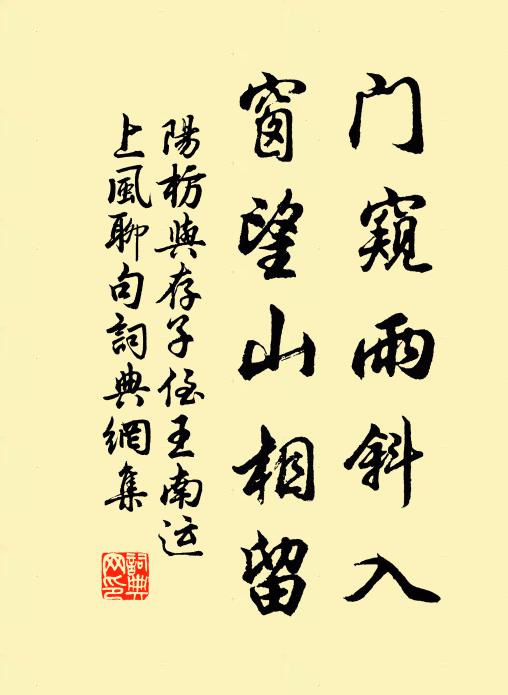 门窥雨斜入
窗望山相留
陽枋與存子侄王南运
上風聊句詞典網集
詞典網印